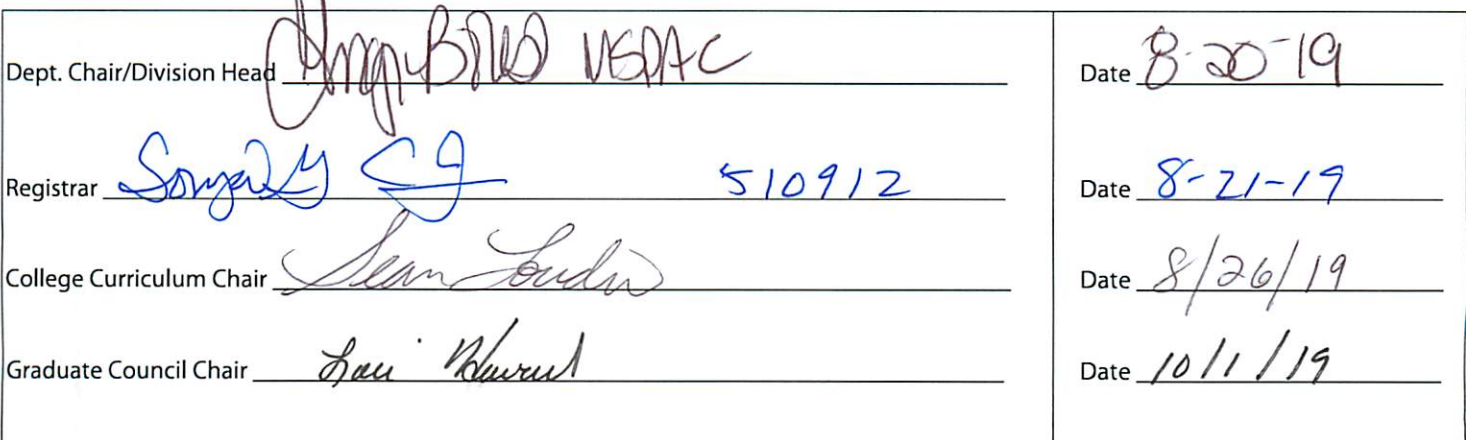 Dept. Chair/Division Head Date 8-20-19
Registrar 510912 Date 8-21-19
College Curriculum Chair Sean Loudin Date 8/26/19
Graduate Council Chair Date 10/1/19